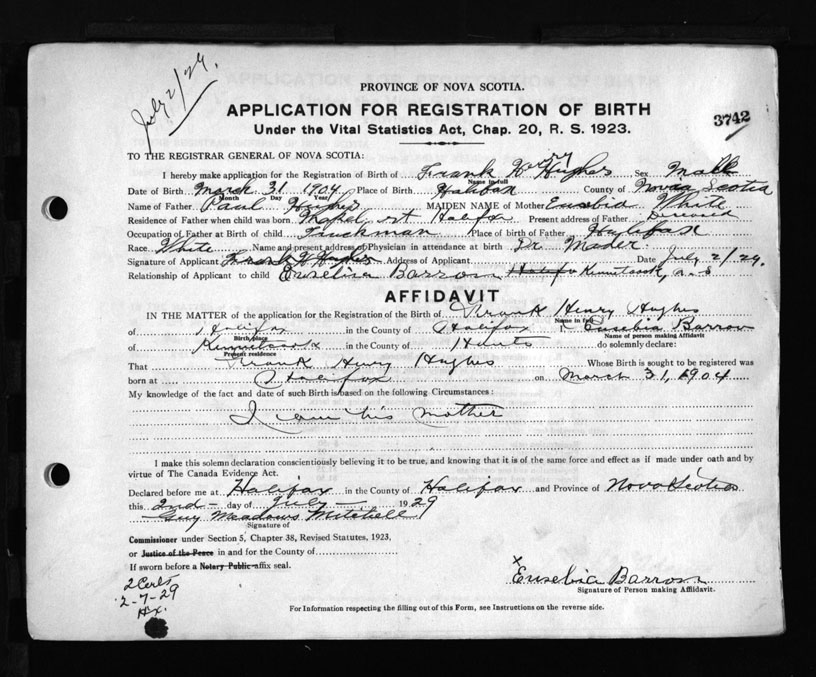 July 2/29.
PROVINCE OF NOVA SCOTIA.
APPLICATION FOR REGISTRATION OF BIRTH
3742
Under the Vital Statistics Act, Chap. 20, R. S. 1923.
TO THE REGISTRAR GENERAL OF NOVA SCOTIA:
I hereby make application for the Registration of Birth of Frank Henry Hughes Sex Male
Name in full
Date of Birth March 31 1904 Place of Birth Halifax County of Nova Scotia
Month Day Year
Name of Father Paul Hughes MAIDEN NAME of Mother Eusebia White
Residence of Father when child was born Chapel st Halifax Present address of Father Deceased
Occupation of Father at Birth of child Truckman Place of birth of Father Halifax
Race White Name and present address of Physician in attendance at birth Dr Mader
Signature of Applicant Frank H Hughes Address of Applicant Date July 2/29.
Relationship of Applicant to child Eusebia Barron Kennetcook, n.s
AFFIDAVIT
IN THE MATTER of the application of the Registration of the Birth of Frank Henry Hughes
Name in full
of Halifax in the County of Halifax I, Eusebia Barron
Birth place Name of person making Affidavit
of Kennetcook in the County of Hants do solemnly declare:
Present residence
That Frank Henry Hughes Whose Birth is sought to be registered was
born at Halifax on March 31, 1904
My knowledge of the fact and date of such Birth is based on the following Circumstances:
I am his mother
I make this solemn declaration conscientiously believing it to be true, and knowing that it is of the same force and effect as if made under oath and by
virtue of The Canada Evidence Act.
Declared before me at Halifax in the County of Halifax and Province of Nova Scotia
this 2nd day of July 1929
Guy Meadows Mitchell
Signature of
Commissioner under Section 5, Chapter 38, Revised Statutes, 1923,
or Justice of the Peace in and for the County of
If sworn before a Notary Public affix seal.
2 Certs
2-7-29
Hx.
x Eusebia Barron
Signature of Person making Affidavit.
For Information respecting the filling out of this Form, see Instructions on the reverse side.